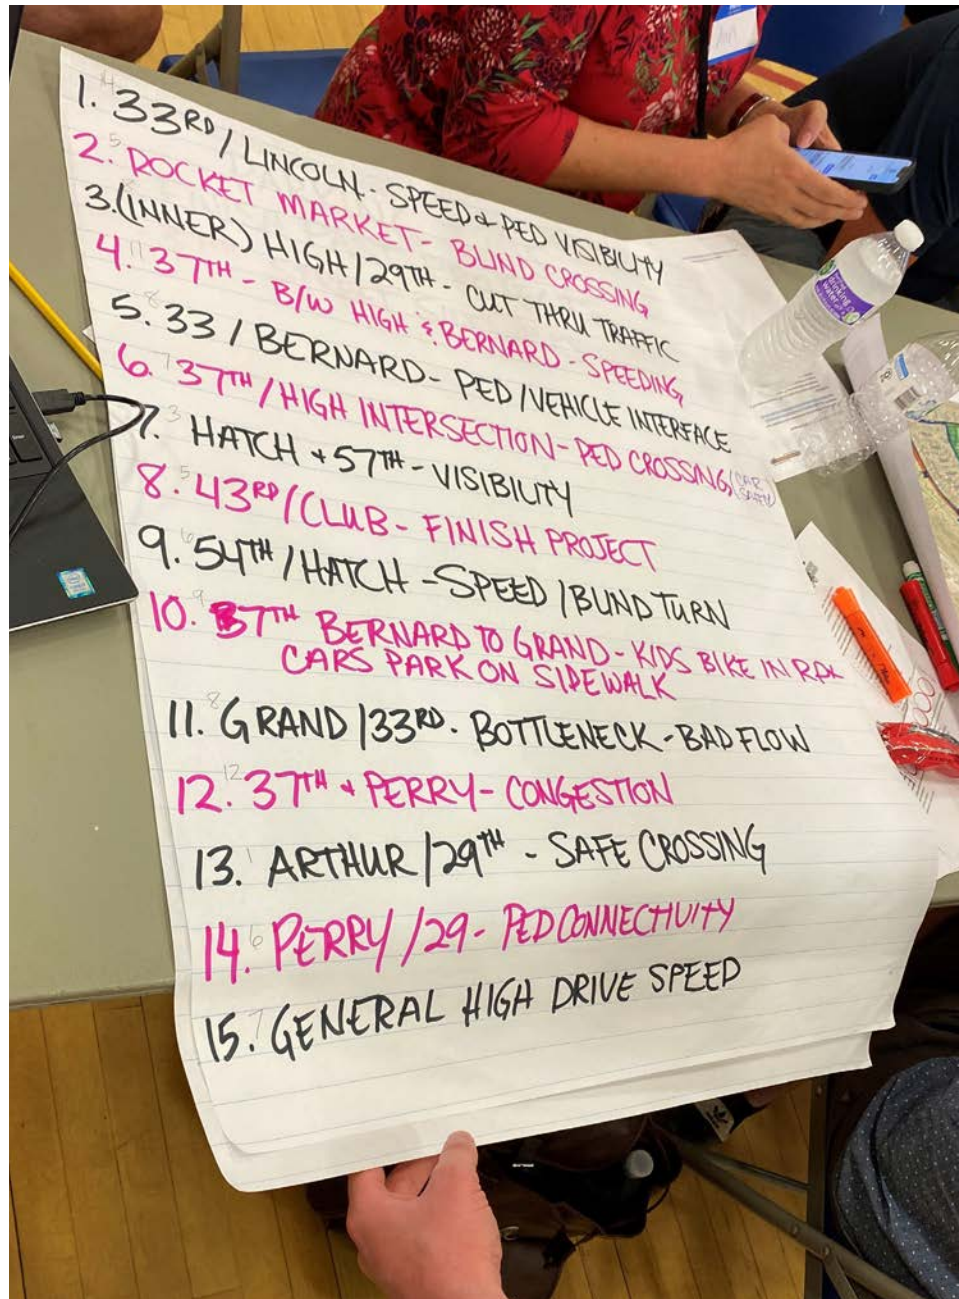 1. 33RD / LINCOLN - SPEED & PED VISIBILITY
2. ROCKET MARKET - BLIND CROSSING
3. (INNER) HIGH / 29TH - CUT THRU TRAFFIC
4. 37TH - B/W HIGH & BERNARD - SPEEDING
5. 33 / BERNARD - PED / VEHICLE INTERFACE
6. 37TH / HIGH INTERSECTION - PED CROSSING / (CAR SAFETY)
7. HATCH + 57TH - VISIBILITY
8. 43RD / CLUB - FINISH PROJECT
9. 54TH / HATCH - SPEED / BLIND TURN
10. 37TH BERNARD TO GRAND - KIDS BIKE IN
CARS PARK ON SIDEWALK
11. GRAND / 33RD - BOTTLENECK - BAD FLOW
12. 37TH + PERRY - CONGESTION
13. ARTHUR / 29TH - SAFE CROSSING
14. PERRY / 29 - PED CONNECTIVITY
15. GENERAL HIGH DRIVE SPEED
drinking
water